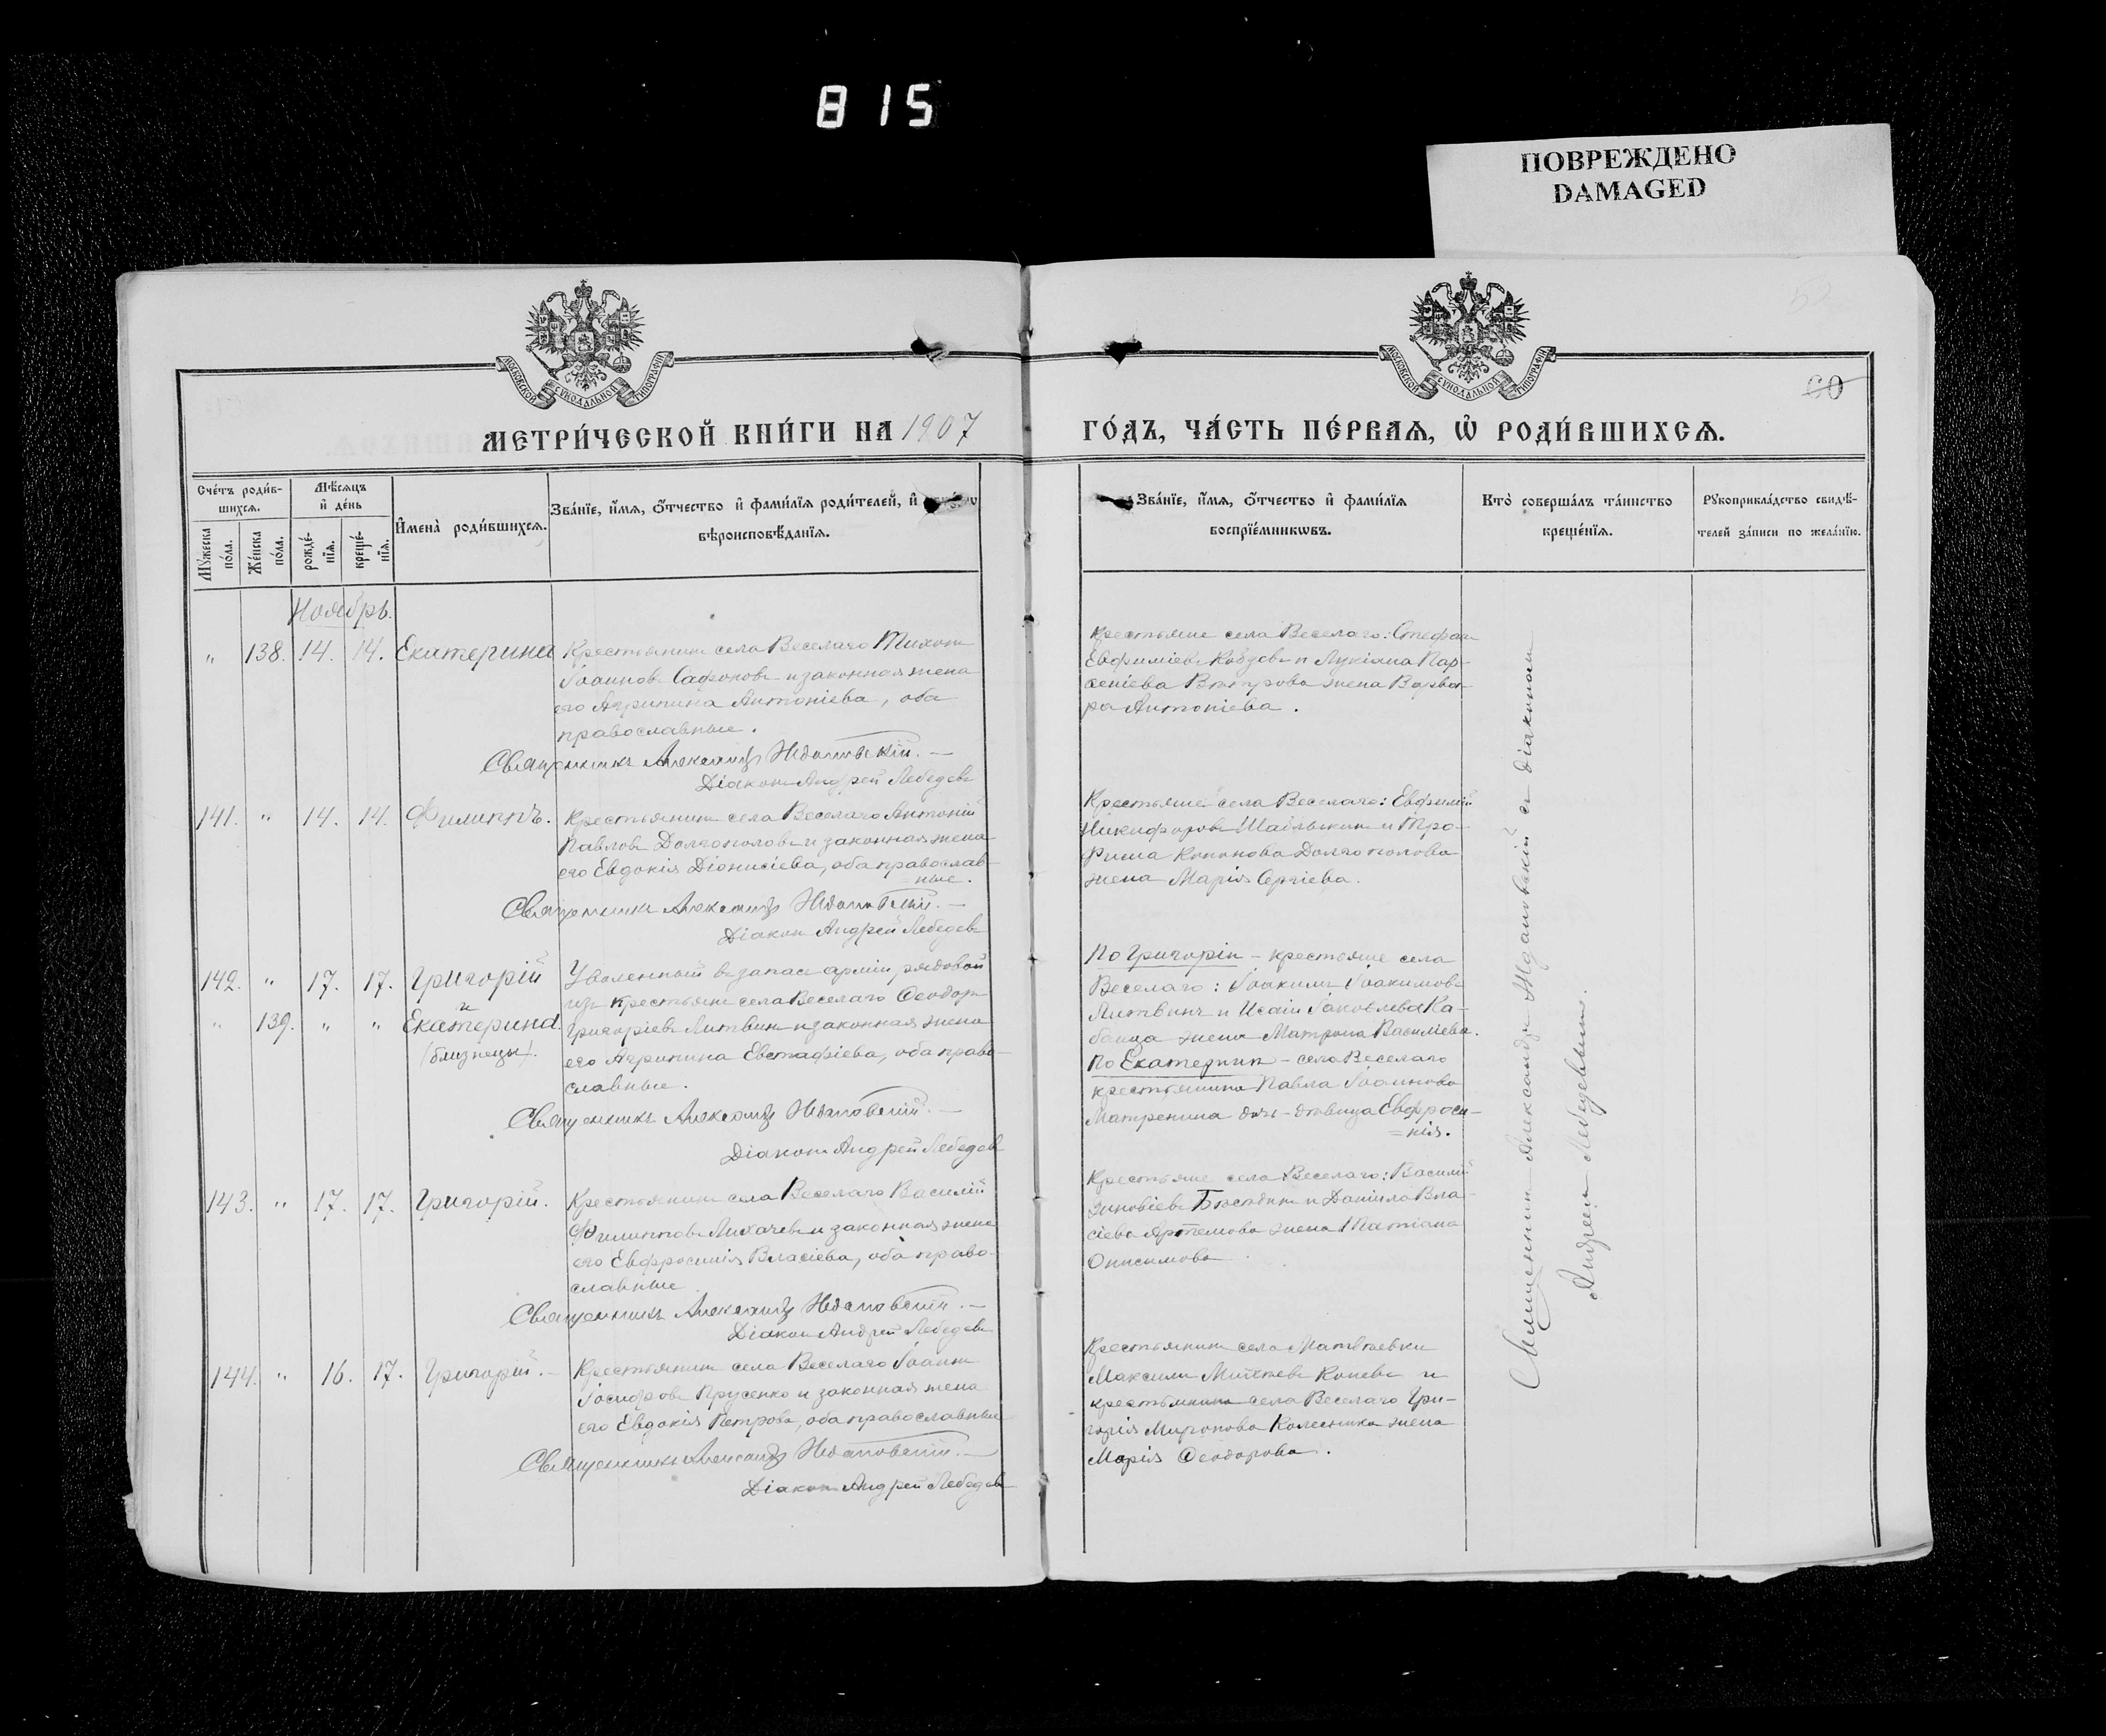 815
ПОВРЕЖДЕНО
DAMAGED
МОСКОВСКОЙ СѴНОДАЛЬНОЙ ТИПОГРАФІИ
МОСКОВСКОЙ СѴНОДАЛЬНОЙ ТИПОГРАФІИ
60
МЕТРИ́ЧЕСКОЙ КНИ́ГИ НА 1907
ГО́ДЪ, ЧА́СТЬ ПЕ́РВАѦ, Ѡ҆ РОДИ́ВШИХСѦ.
Сче́тъ роди́в-
шихсѧ.
Мѣ́сѧцъ
и҆ де́нь
Мꙋ́жеска
по́ла.
Же́нска
по́ла.
рожде́-
нїѧ.
креще́-
нїѧ.
И҆мена̀ роди́вшихсѧ.
Зва́нїе, и҆́мѧ, ѻ҆́тчество и҆ фами́лїѧ роди́телей, и҆
вѣроисповѣ́данїѧ.
Зва́нїе, и҆́мѧ, ѻ҆́тчество и҆ фами́лїѧ
воспрїе́мникѡвъ.
Кто̀ соверша́лъ та́инство
креще́нїѧ.
Рꙋкоприкла́дство свидѣ́-
телей за́писи по жела́нїю.
Ноябрь.
" 138. 14. 14. Екатерина
Крестьянинъ села Веселаго Тихонъ
Іоанновъ Сафоновъ и законная жена
его Агрипина Антоніева, оба
православные.
Священникъ Александръ Ждановскій.
Діаконъ Андрей Лебедевъ
Крестьяне села Веселаго: Стефанъ
Евфиміевъ и Лукіана Пар-
ѳеніева Вѣтрова жена Варва-
ра Антоніева.
141. " 14. 14. Филиппъ.
Крестьянинъ села Веселаго Антоній
Павловъ Долгополовъ и законная жена
его Евдокія Діонисіева, оба православ-
ные.
Священникъ Александръ Ждановскій.
Діаконъ Андрей Лебедевъ
Крестьяне села Веселаго: Евфимій
Никифоровъ Шаблыкинъ и Тро-
фима Кононова Долгополова
жена Марія Сергіева.
142. " 17. 17. Григорій
и
" 139. " " Екатерина
(близнецы).
Уволенный въ запасъ арміи, рядовой
изъ крестьянъ села Веселаго Ѳеодоръ
Григоріевъ Литвинъ и законная жена
его Агрипина Евстафіева, оба право-
славные.
Священникъ Александръ Ждановскій.
Діаконъ Андрей Лебедевъ
По Григоріи - крестьяне села
Веселаго: Іоакимъ Іоакимовъ
Литвинъ и Исаіи Іаковлева Ка-
банца жена Матрона Василіева.
По Екатеринѣ - села Веселаго
крестьянина Павла Іоаннова
Матренина дочь - дѣвица Евфроси-
=нія.
143. " 17. 17. Григорій.
Крестьянинъ села Веселаго Василій
Филипповъ Лихачевъ и законная жена
его Евфросинія Власіева, оба право-
славные
Священникъ Александръ Ждановскій.
Діаконъ Андрей Лебедевъ
Крестьяне села Веселаго: Василій
Зиновіевъ Бѣсѣдинъ и Даніила Вла-
сіева Артемова жена Татіана
Онисимова
144. " 16. 17. Григорій.
Крестьянинъ села Веселаго Іоаннъ
Іосифовъ Прусенко и законная жена
его Евдокія Петрова, оба православные
Священникъ Александръ Ждановскій.
Діаконъ Андрей Лебедевъ
Крестьянинъ села Матвѣевки
Максимъ Коневъ и
крестьянина села Веселаго Гри-
горія Миронова Колесника жена
Марія Ѳеодорова.
Священникъ Александръ Ждановскій съ діакономъ
Андреемъ Лебедевымъ.